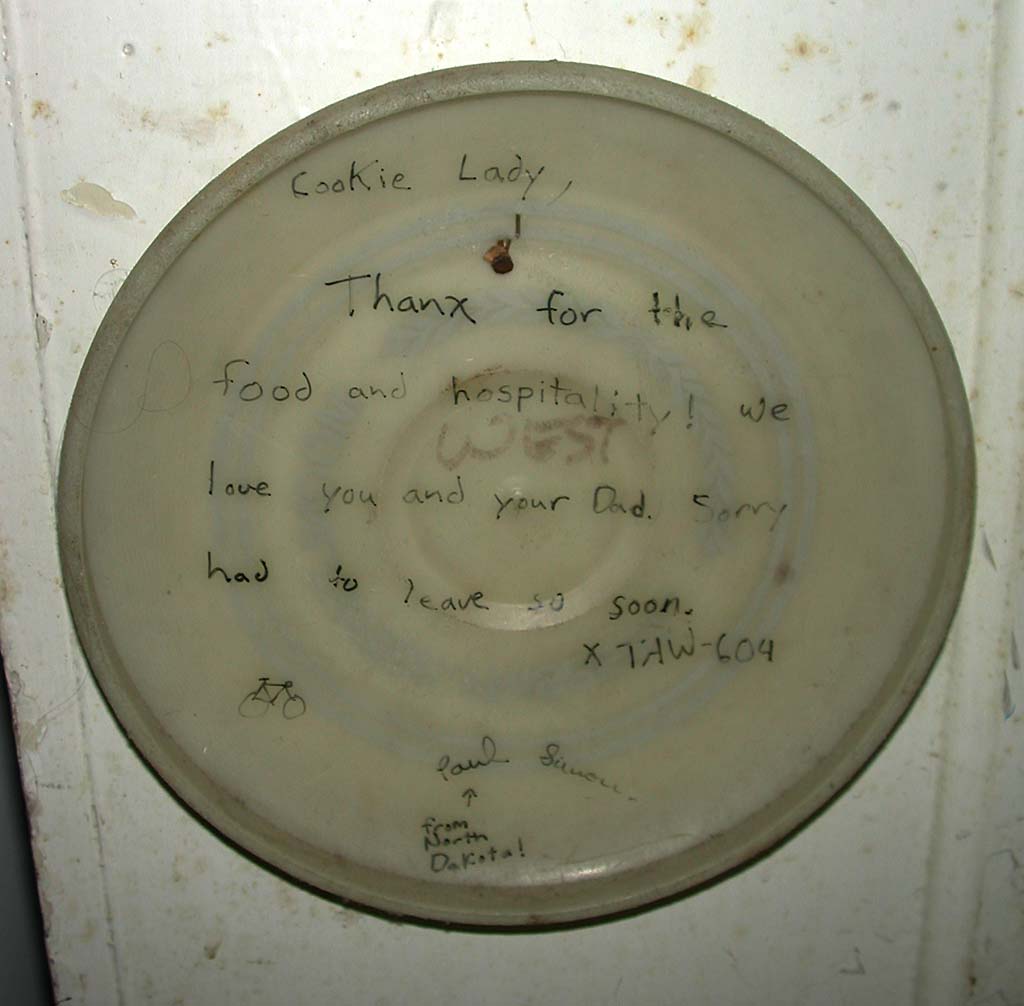 Cookie Lady,
Thanx for the
food and hospitality! we
WEST
love you and your Dad. Sorry
had to leave so soon.
X TAW-604
Paul Simon.
↑
from
North
Dakota!